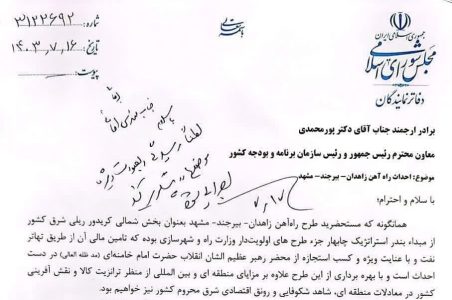 باسمه تعالی
جمهوری اسلامی ایران
مجلس شورای اسلامی
دفاتر نمایندگان
شماره: ۳۱۲۳۶۹۲
تاریخ: ۱۴۰۳,۷,۱۶
پیوست:
برادر ارجمند جناب آقای دکتر پورمحمدی
معاون محترم رئیس جمهور و رئیس سازمان برنامه و بودجه کشور
موضوع: احداث راه آهن زاهدان- بیرجند- مشهد
با سلام و احترام؛
همانگونه که مستحضرید طرح راه‌آهن زاهدان- بیرجند- مشهد بعنوان بخش شمالی کریدور ریلی شرق کشور
از مبداء بندر استراتژیک چابهار جزء طرح های اولویت‌دار وزارت راه و شهرسازی بوده که تامین مالی آن از طریق تهاتر
نفت و با عنایت ویژه و کسب استجازه از محضر رهبر عظیم الشان انقلاب حضرت امام خامنه‌ای (مد ظله العالی) در دست
احداث است و با بهره برداری از این طرح علاوه بر مزایای منطقه ای و بین المللی از منظر ترانزیت کالا و نقش آفرینی
کشور در معادلات منطقه ای، شاهد شکوفایی و رونق اقتصادی شرق محروم کشور نیز خواهیم بود.
با سلام
لطفاً
موضوع
۷,۱۷